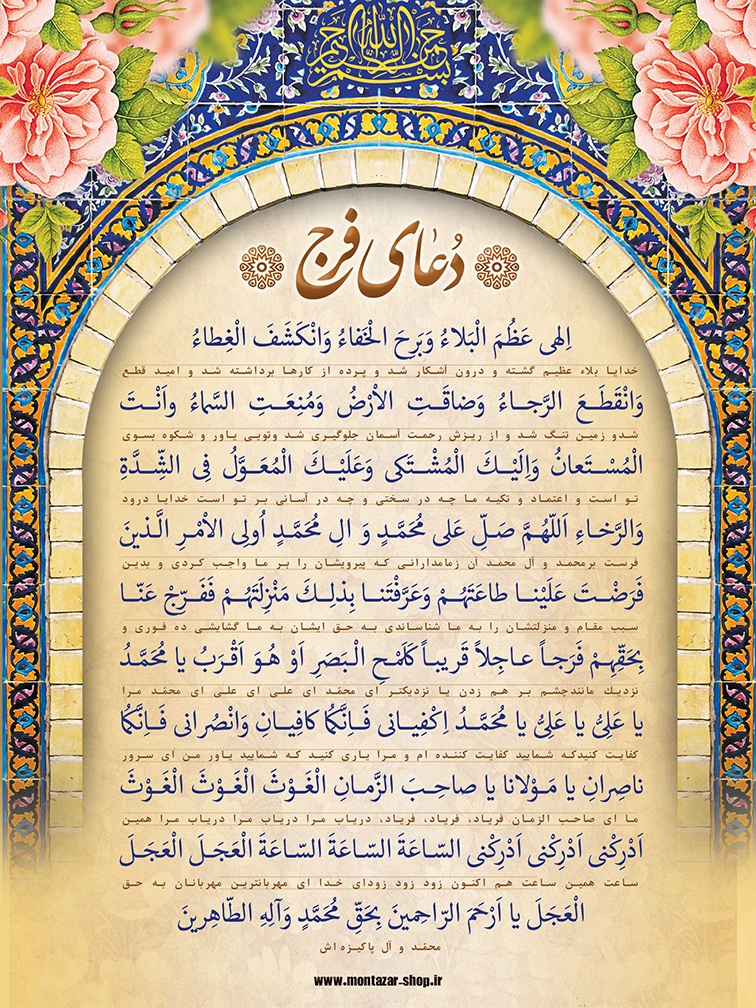 بسم الله الرحمن الرحیم
دُعای فرج
اِلهی عَظُمَ الْبَلاءُ وَبَرِحَ الْخَفاءُ وَانْکَشَفَ الْغِطاءُ
خدایا بلاء عظیم گشته و درون آشکار شد و پرده از کارها برداشته شد و امید قطع
وَانْقَطَعَ الرَّجاءُ وَضاقَتِ الاْرْضُ وَمُنِعَتِ السَّماءُ واَنْتَ
شدو زمین تنگ شد و از ریزش رحمت آسمان جلوگیری شد وتویی یاور و شکوه بسوی
الْمُسْتَعانُ وَاِلَیْكَ الْمُشْتَکی وَعَلَیْكَ الْمُعَوَّلُ فِی الشِّدَّةِ
تو است و اعتماد و تکیه ما چه در سختی و چه در آسانی بر تو است خدایا درود
وَالرَّخاءِ اَللّهُمَّ صَلِّ عَلی مُحَمَّدٍ وَ الِ مُحَمَّدٍ اُولِی الاْمْرِ الَّذینَ
فرست برمحمد و آل محمد آن زمامدارانی که پیرویشان را بر ما واجب کردی و بدین
فَرَضْتَ عَلَیْنا طاعَتَهُمْ وَعَرَّفْتَنا بِذلِكَ مَنْزِلَتَهُمْ فَفَرِّجْ عَنّا
سبب مقام و منزلتشان را به ما شناساندی به حق ایشان به ما گشایشی ده فوری و
بِحَقِّهِمْ فَرَجاً عاجِلاً قَریباً کَلَمْحِ الْبَصَرِ اَوْ هُوَ اَقْرَبُ یا مُحَمَّدُ
نزدیك مانندچشم بر هم زدن یا نزدیکتر ای محمّد ای علی ای علی ای محمّد مرا
یا عَلِیُّ یا عَلِیُّ یا مُحَمَّدُ اِکْفِیانی فَاِنَّکُما کافِیانِ وَانْصُرانی فَاِنَّکُما
کفایت کنیدکه شمایید کفایت کننده ام و مرا یاری کنید که شمایید یاور من ای سرور
ناصِرانِ یا مَوْلانا یا صاحِبَ الزَّمانِ الْغَوْثَ الْغَوْثَ الْغَوْثَ
ما ای صاحب الزمان فریاد، فریاد، فریاد، دریاب مرا دریاب مرا دریاب مرا همین
اَدْرِکْنی اَدْرِکْنی اَدْرِکْنی السّاعَةَ السّاعَةَ السّاعَةَ الْعَجَلَ الْعَجَلَ
ساعت همین ساعت هم اکنون زود زود زودای خدا ای مهربانترین مهربانان به حق
الْعَجَلَ یا اَرْحَمَ الرّاحِمینَ بِحَقِّ مُحَمَّدٍ وَآلِهِ الطّاهِرینَ
محمّد و آل پاکیزه‌اش
www.montazar-shop.ir